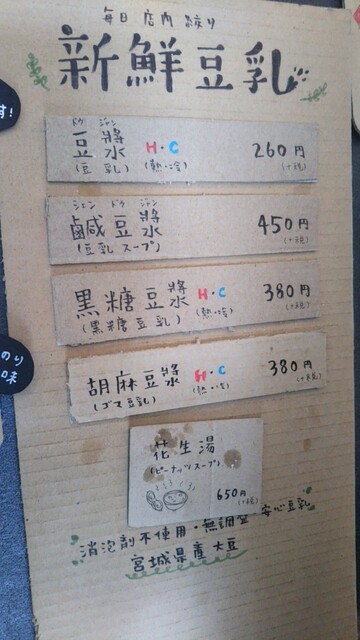 毎日店内絞り
新鮮豆乳
ドウ ジャン
豆漿 H・C 260円
(豆乳) (熱・冷) (+税)
シェン ドウ ジャン
鹹豆漿 450円
(豆乳スープ) (+税)
黒糖豆漿 H・C 380円
(黒糖豆乳) (熱・冷) (+税)
胡麻豆漿 H・C 380円
(ゴマ豆乳) (熱・冷) (+税)
花生湯
(ピーナッツスープ)
650円
(+税)
消泡剤不使用・無調整・安心豆乳
宮城県産大豆
す!
のり
味